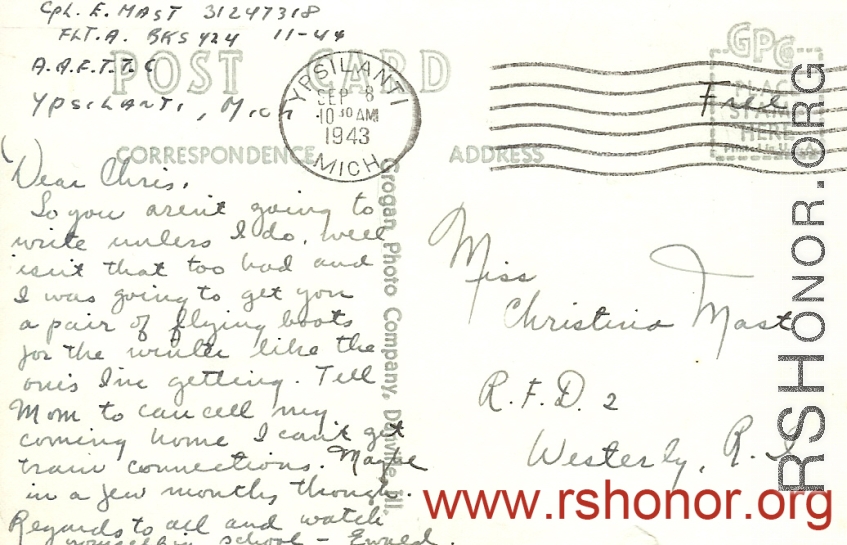 Cpl. E. MAST 31247318
FLT.A. BKS 424 11-44
A.A.F.T.T.C
YPSILANTI, Mich
POST CARD
YPSILANTI
SEP 8
10 30 AM
1943
MICH.
GPC
PLACE
STAMP
HERE
Free
CORRESPONDENCE
ADDRESS
Dear Chris,
So you aren't going to
write unless I do. well
isn't that too bad and
I was going to get you
a pair of flying boots
for the winter like the
ones I'm getting. Tell
Mom to cancell my
coming home I can't get
train connections. Maybe
in a few months though.
Regards to all and watch
yourself in school - Ewald.
Grogan Photo Company, Danville, Ill.
Miss
Christina Mast
R.F.D. 2
Westerly, R.I.
RSHONOR.ORG
www.rshonor.org